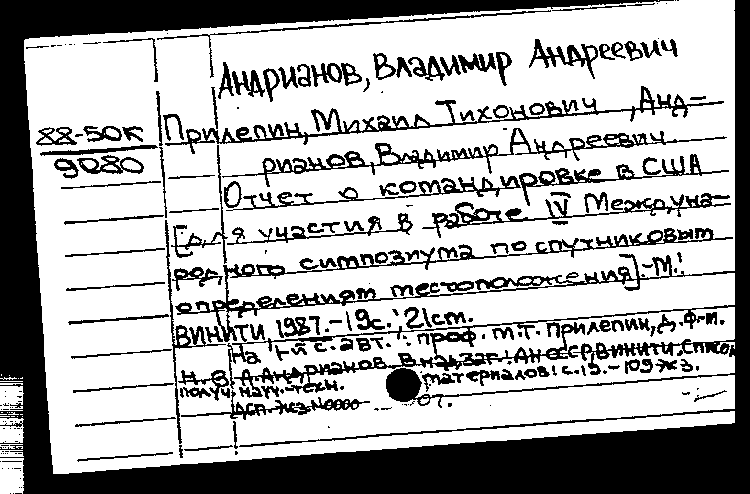 Андрианов, Владимир Андреевич
88-50К
9080
Прилепин, Михаил Тихонович, Анд-
рианов, Владимир Андреевич.
Отчет о командировке в США
[для участия в работе IV Междуна-
родного симпозиума по спутниковым
определениям местоположения].-М.:
ВИНИТИ, 1987.-19с.; 21см.
На 1-й с. авт.: проф. М.Т. Прилепин, д.ф-м.
н. В.А.Андрианов. В надзаг.: АН СССР, ВИНИТИ. Список
получ. науч.-техн. материалов: с.19.- 109 экз.
ДСП. Экз.N0000